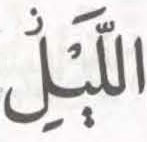 اللَّيْلِ ز